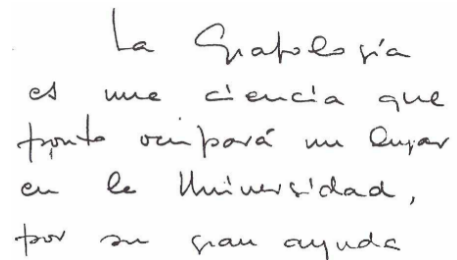 La Grafología
es una ciencia que
pronto ocupará un lugar
en la Universidad,
por su gran ayuda